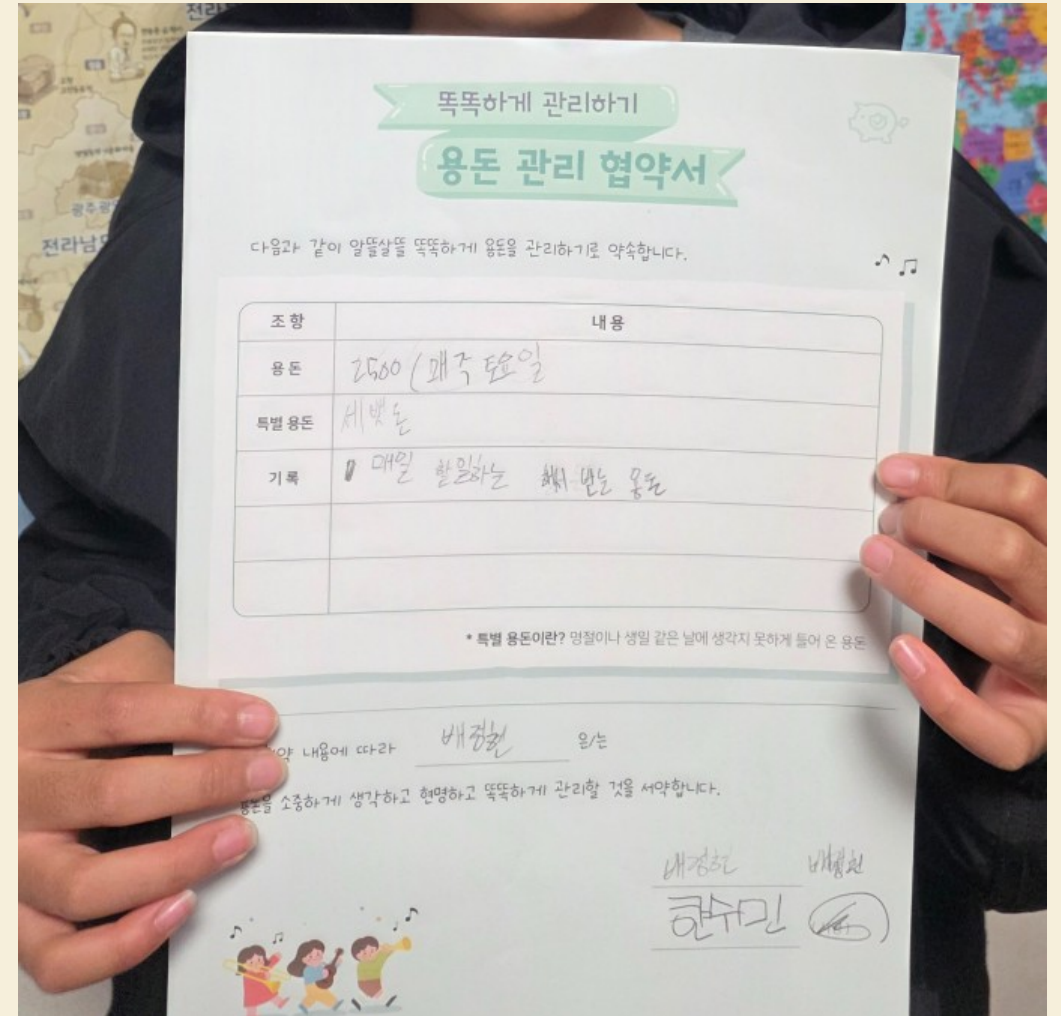 전라
광주광
전라남
똑똑하게 관리하기
용돈 관리 협약서
다음과 같이 알뜰살뜰 똑똑하게 용돈을 관리하기로 약속합니다.
조항 내용
용돈 2500 (매주 토요일
특별 용돈 세뱃돈
기록 매일 할일하는 해서 받는 용돈
* 특별 용돈이란? 명절이나 생일 같은 날에 생각지 못하게 들어 온 용돈
약 내용에 따라 배경헌 은/는
용돈을 소중하게 생각하고 현명하고 똑똑하게 관리할 것을 서약합니다.
배경헌
현수민